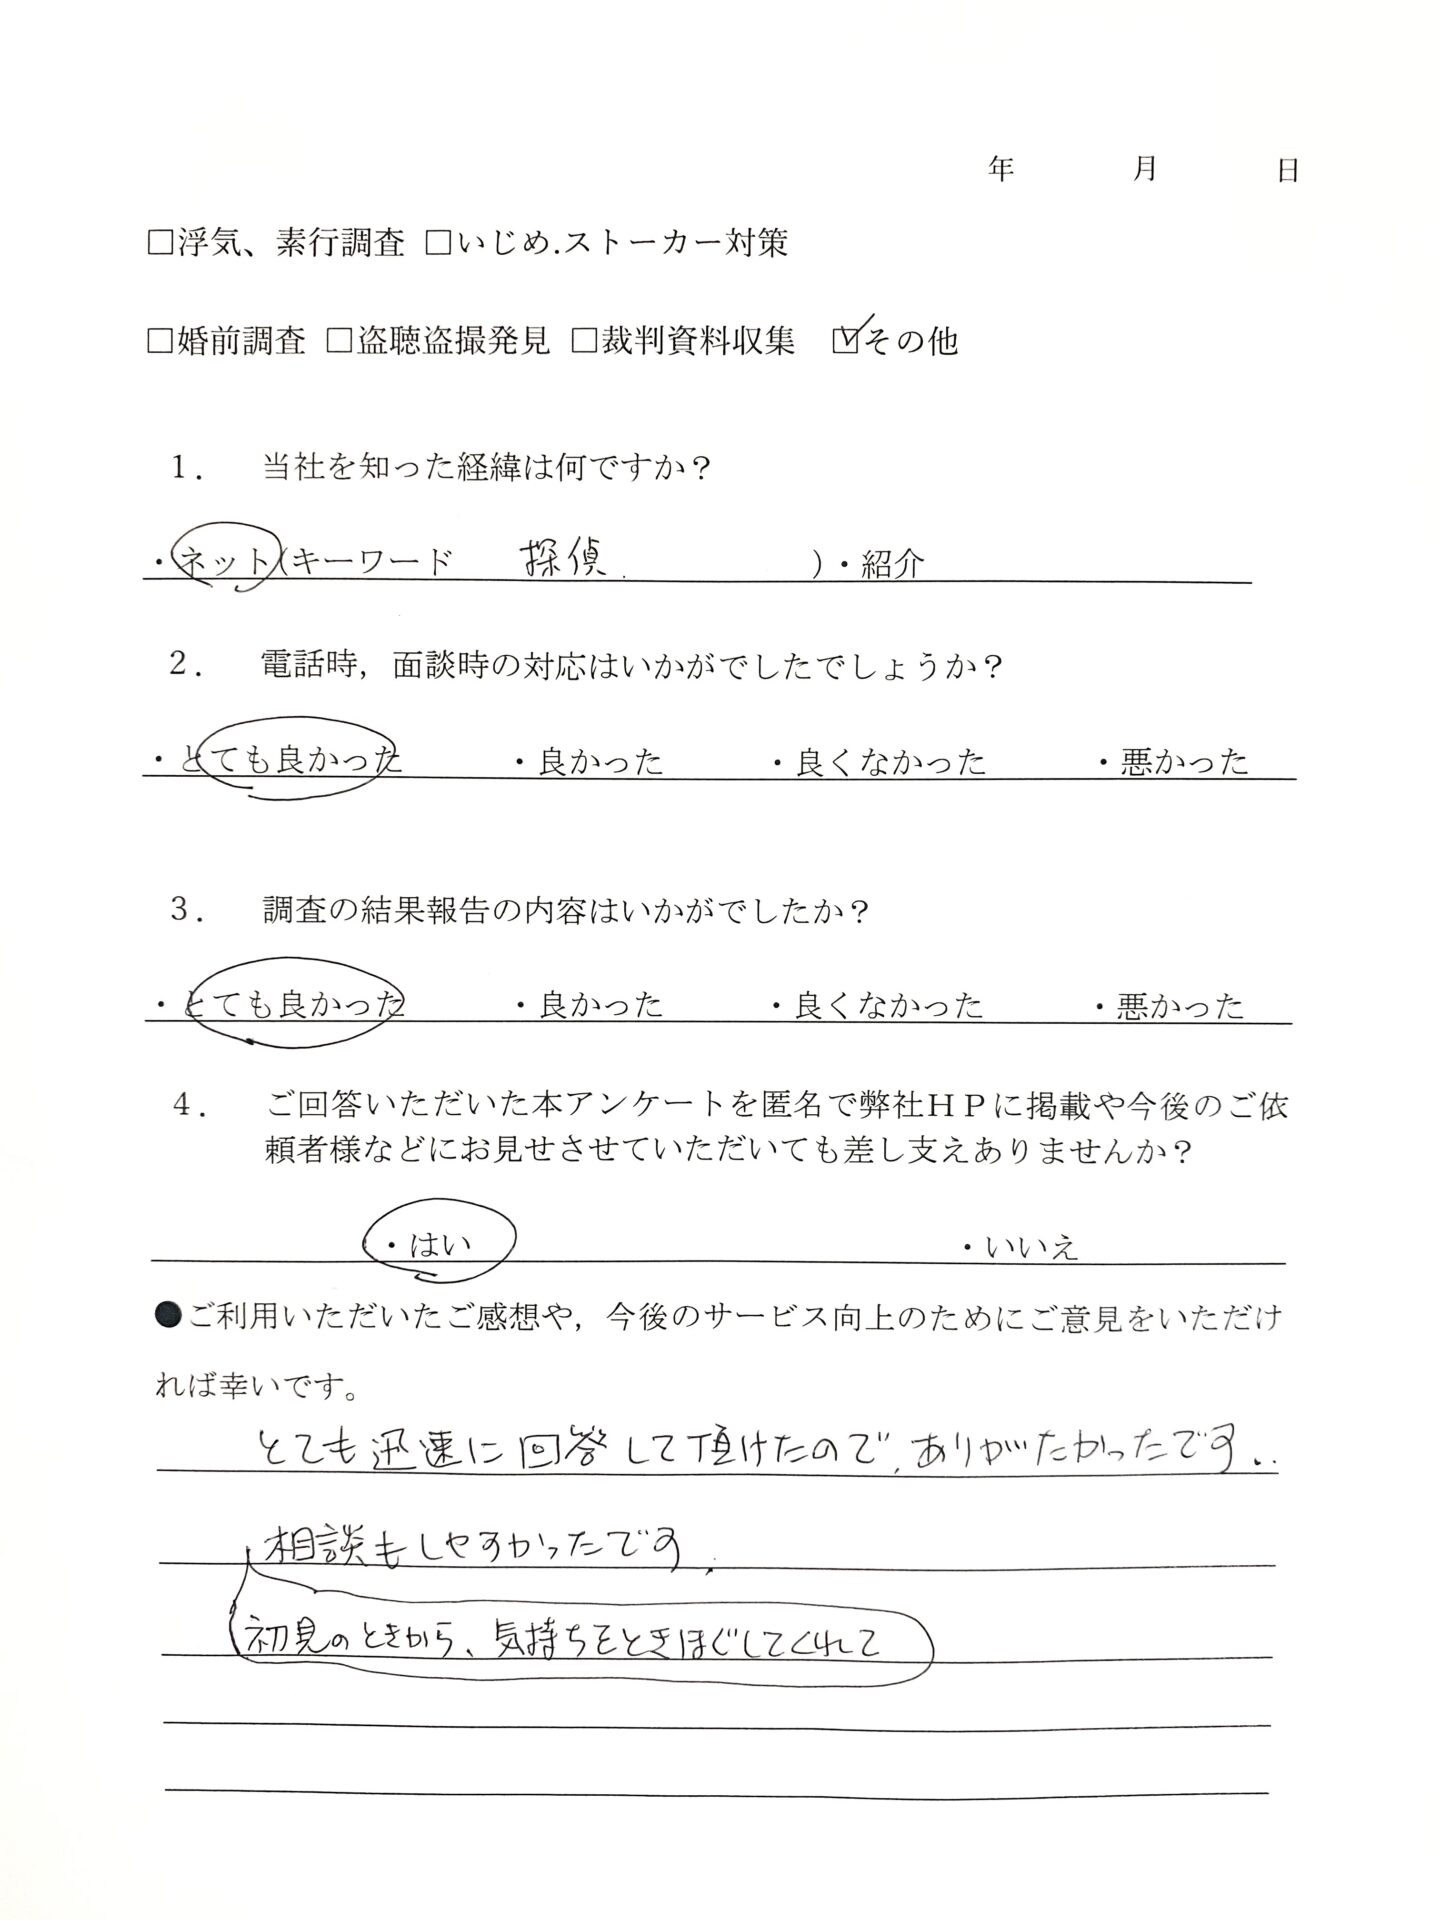 年　月　日
□浮気、素行調査 □いじめ.ストーカー対策
□婚前調査 □盗聴盗撮発見 □裁判資料収集 ☑その他
１．　当社を知った経緯は何ですか？
・ネット(キーワード　探偵.　)・紹介
２．　電話時，面談時の対応はいかがでしたでしょうか？
・とても良かった　・良かった　・良くなかった　・悪かった
３．　調査の結果報告の内容はいかがでしたか？
・とても良かった　・良かった　・良くなかった　・悪かった
４．　ご回答いただいた本アンケートを匿名で弊社ＨＰに掲載や今後のご依
頼者様などにお見せさせていただいても差し支えありませんか？
・はい　・いいえ
●ご利用いただいたご感想や，今後のサービス向上のためにご意見をいただけ
れば幸いです。
とても迅速に回答して頂けたので、ありがたかったです..
相談もしやすかったです.
初見のときから、気持ちをときほぐしてくれて